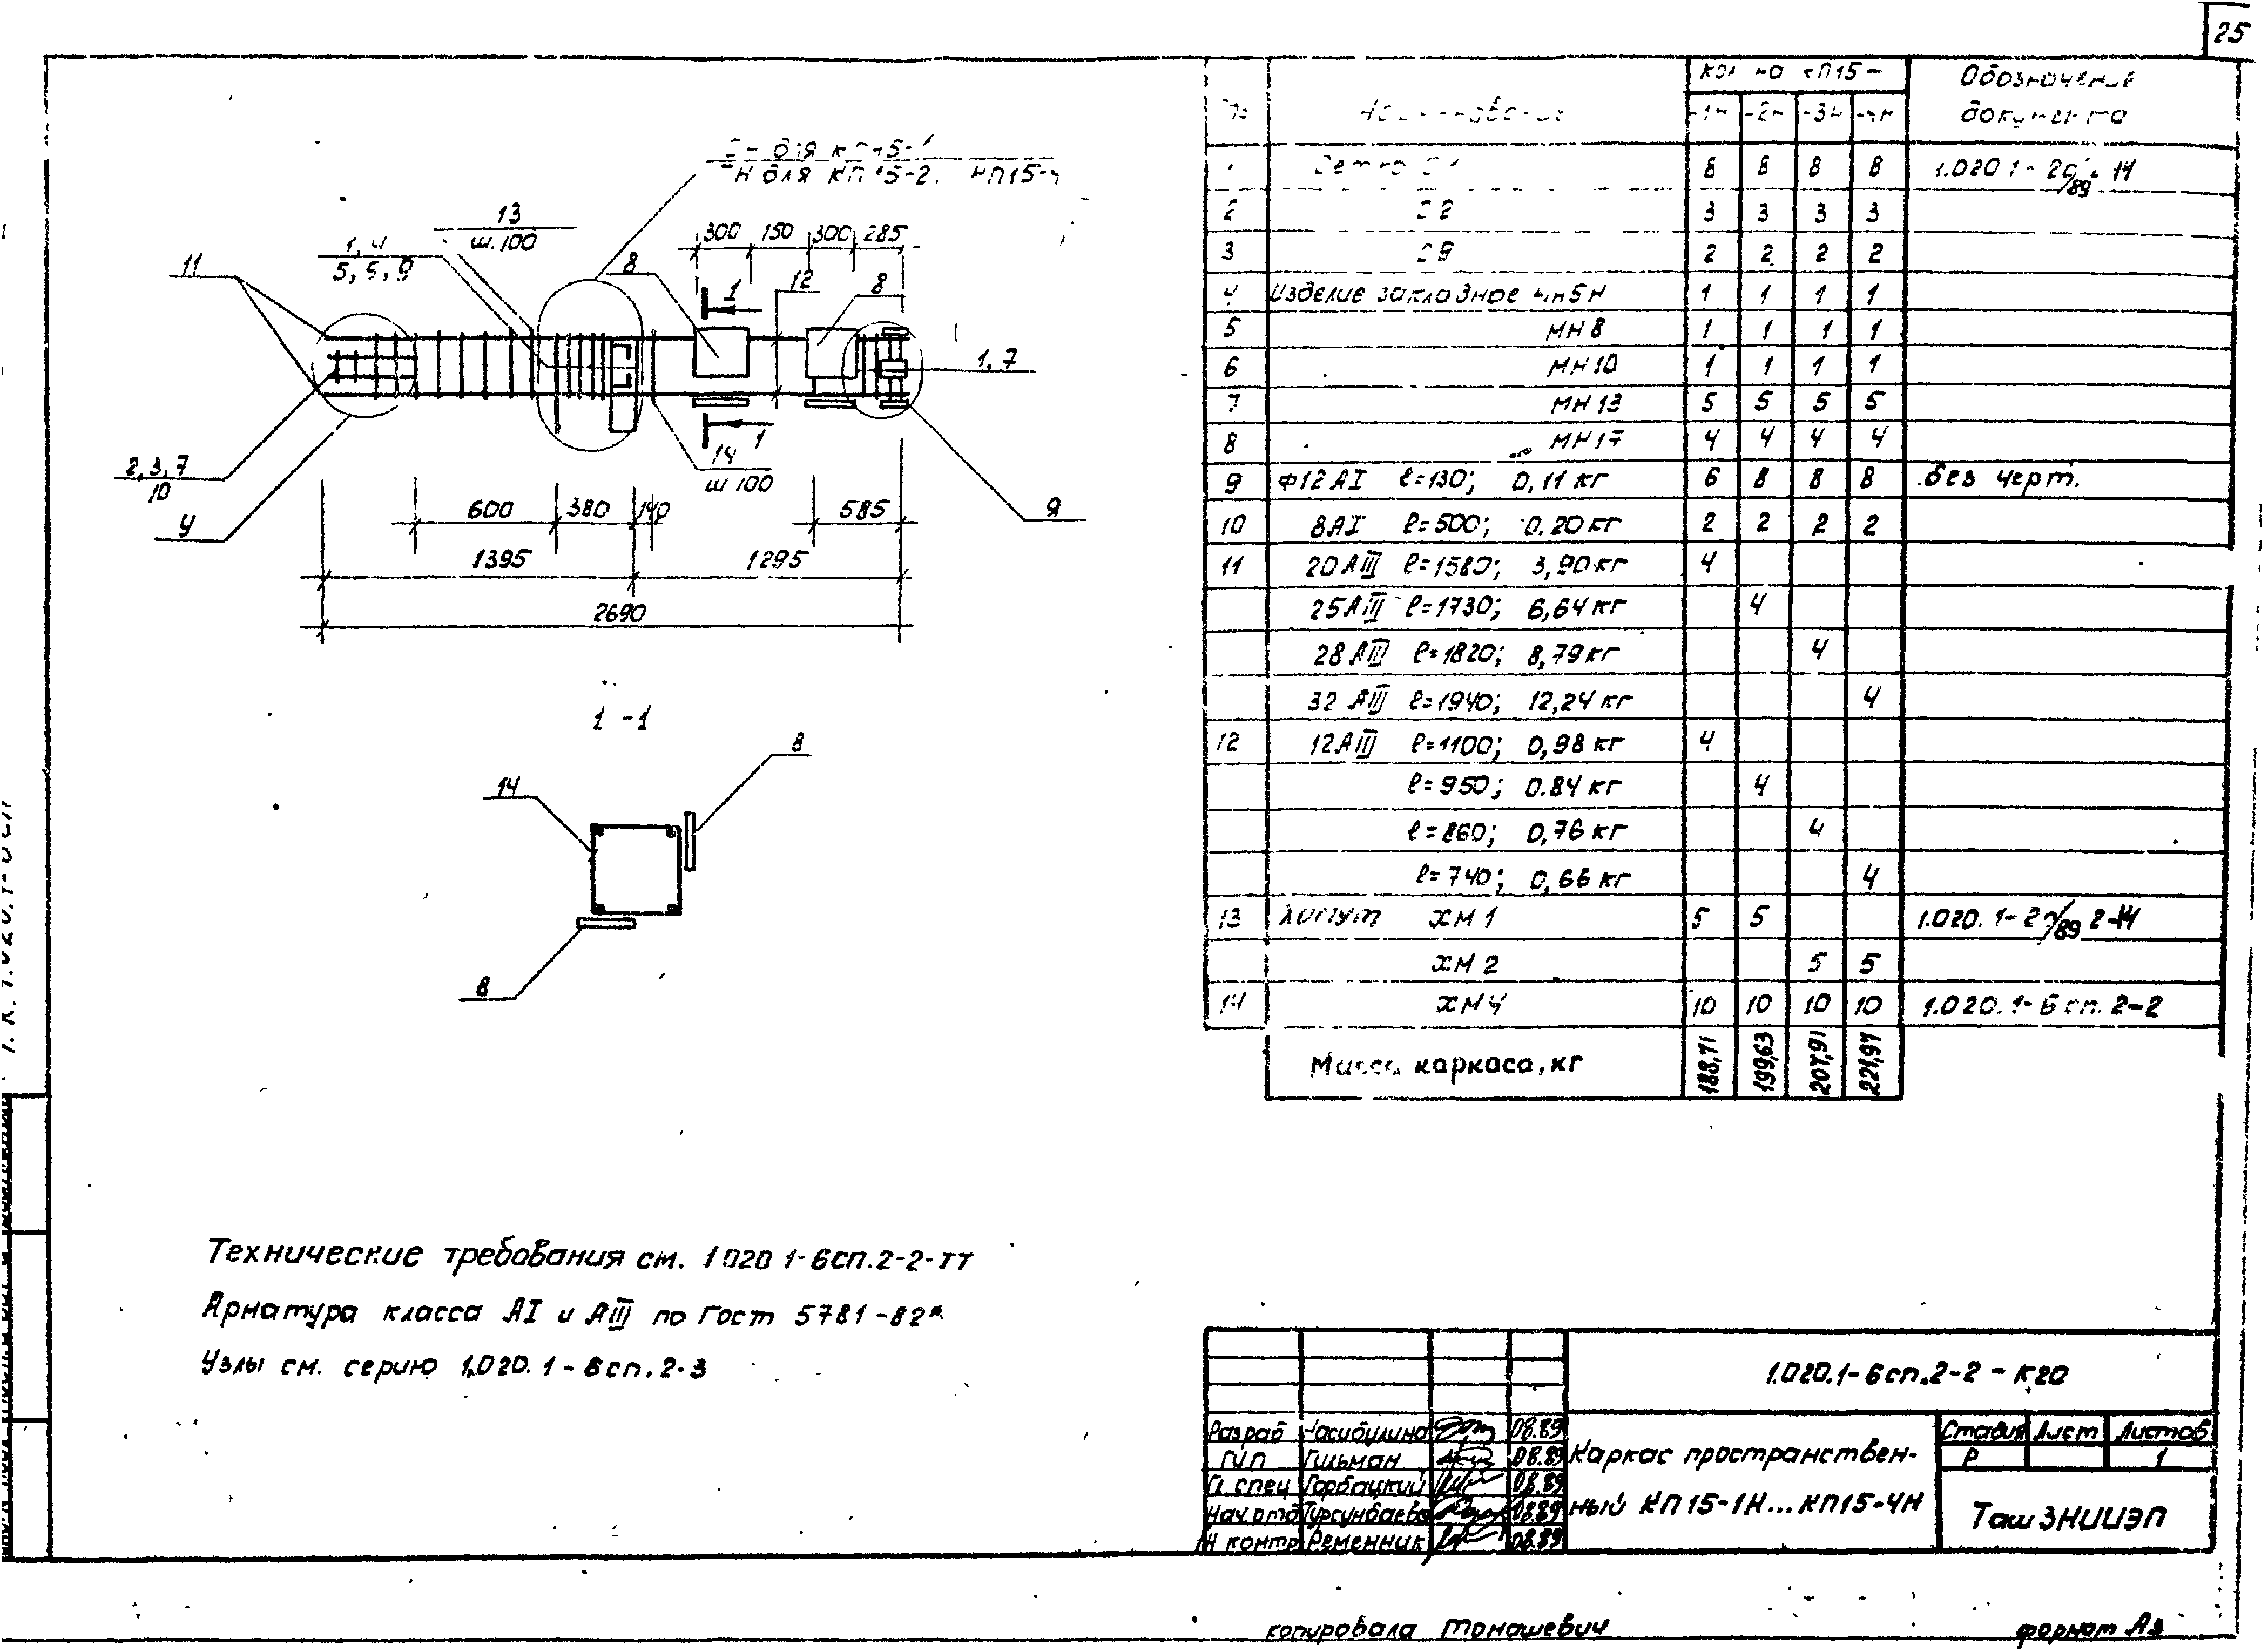 25
для КП15-1
для КП15-2. КП15-4
13
ш.100
5, 5, 9
11
8
300 150 300 285
12
8
1
1, 7
1
14
ш 100
2, 3, 7
10
У
9
600 380 140 585
1395 1295
2690
1 - 1
8
14
8
Кол на КП15-
Обозначение документа
-1н -2н -3н -4н
Сетка 8 8 8 8
2 С2 3 3 3 3
3 С9 2 2 2 2
4 Изделие закладное МН5Н 1 1 1 1
5 МН8 1 1 1 1
6 МН10 1 1 1 1
7 МН13 5 5 5 5
8 МН17 4 4 4 4
9 Ф12АI ℓ=130; 0,11 кг 6 8 8 8 без черт.
10 8АI ℓ=500; 0.20 кг 2 2 2 2
11 20АIII ℓ=1580; 3,90 кг 4
25АIII ℓ=1730; 6,64 кг 4
28АIII ℓ=1820; 8,79 кг 4
32АIII ℓ=1940; 12,24 кг 4
12 12АIII ℓ=1100; 0,98 кг 4
ℓ=950; 0.84 кг 4
ℓ=860; 0,76 кг 4
ℓ=740; 0,66 кг 4
13 Хомут ХМ1 5 5
ХМ2 5 5
14 ХМ4 10 10 10 10 1.020.1-6 сп. 2-2
Масса каркаса, кг 188,71 199,63 207,91 221,97
Технические требования см. 1 020 1-6сп.2-2-ТТ
Арматура класса АI и АIII по Гост 5781-82*
Узлы см. серию 1,020. 1-6сп. 2-3
1.020.1-6сп.2-2-К20
Разраб Насибулина 08.89
ГИП Гильман 08.89
Гл спец Горбацкий 08.89
Нач.отд Турсунбаева 08.89
Н контр Ременник 08.89
Каркас пространствен-
ный КП15-1Н...КП15-4Н
Стадия Лист Листов
Р 1
ТашЗНИИЭП
копировала Томашевич
формат А3